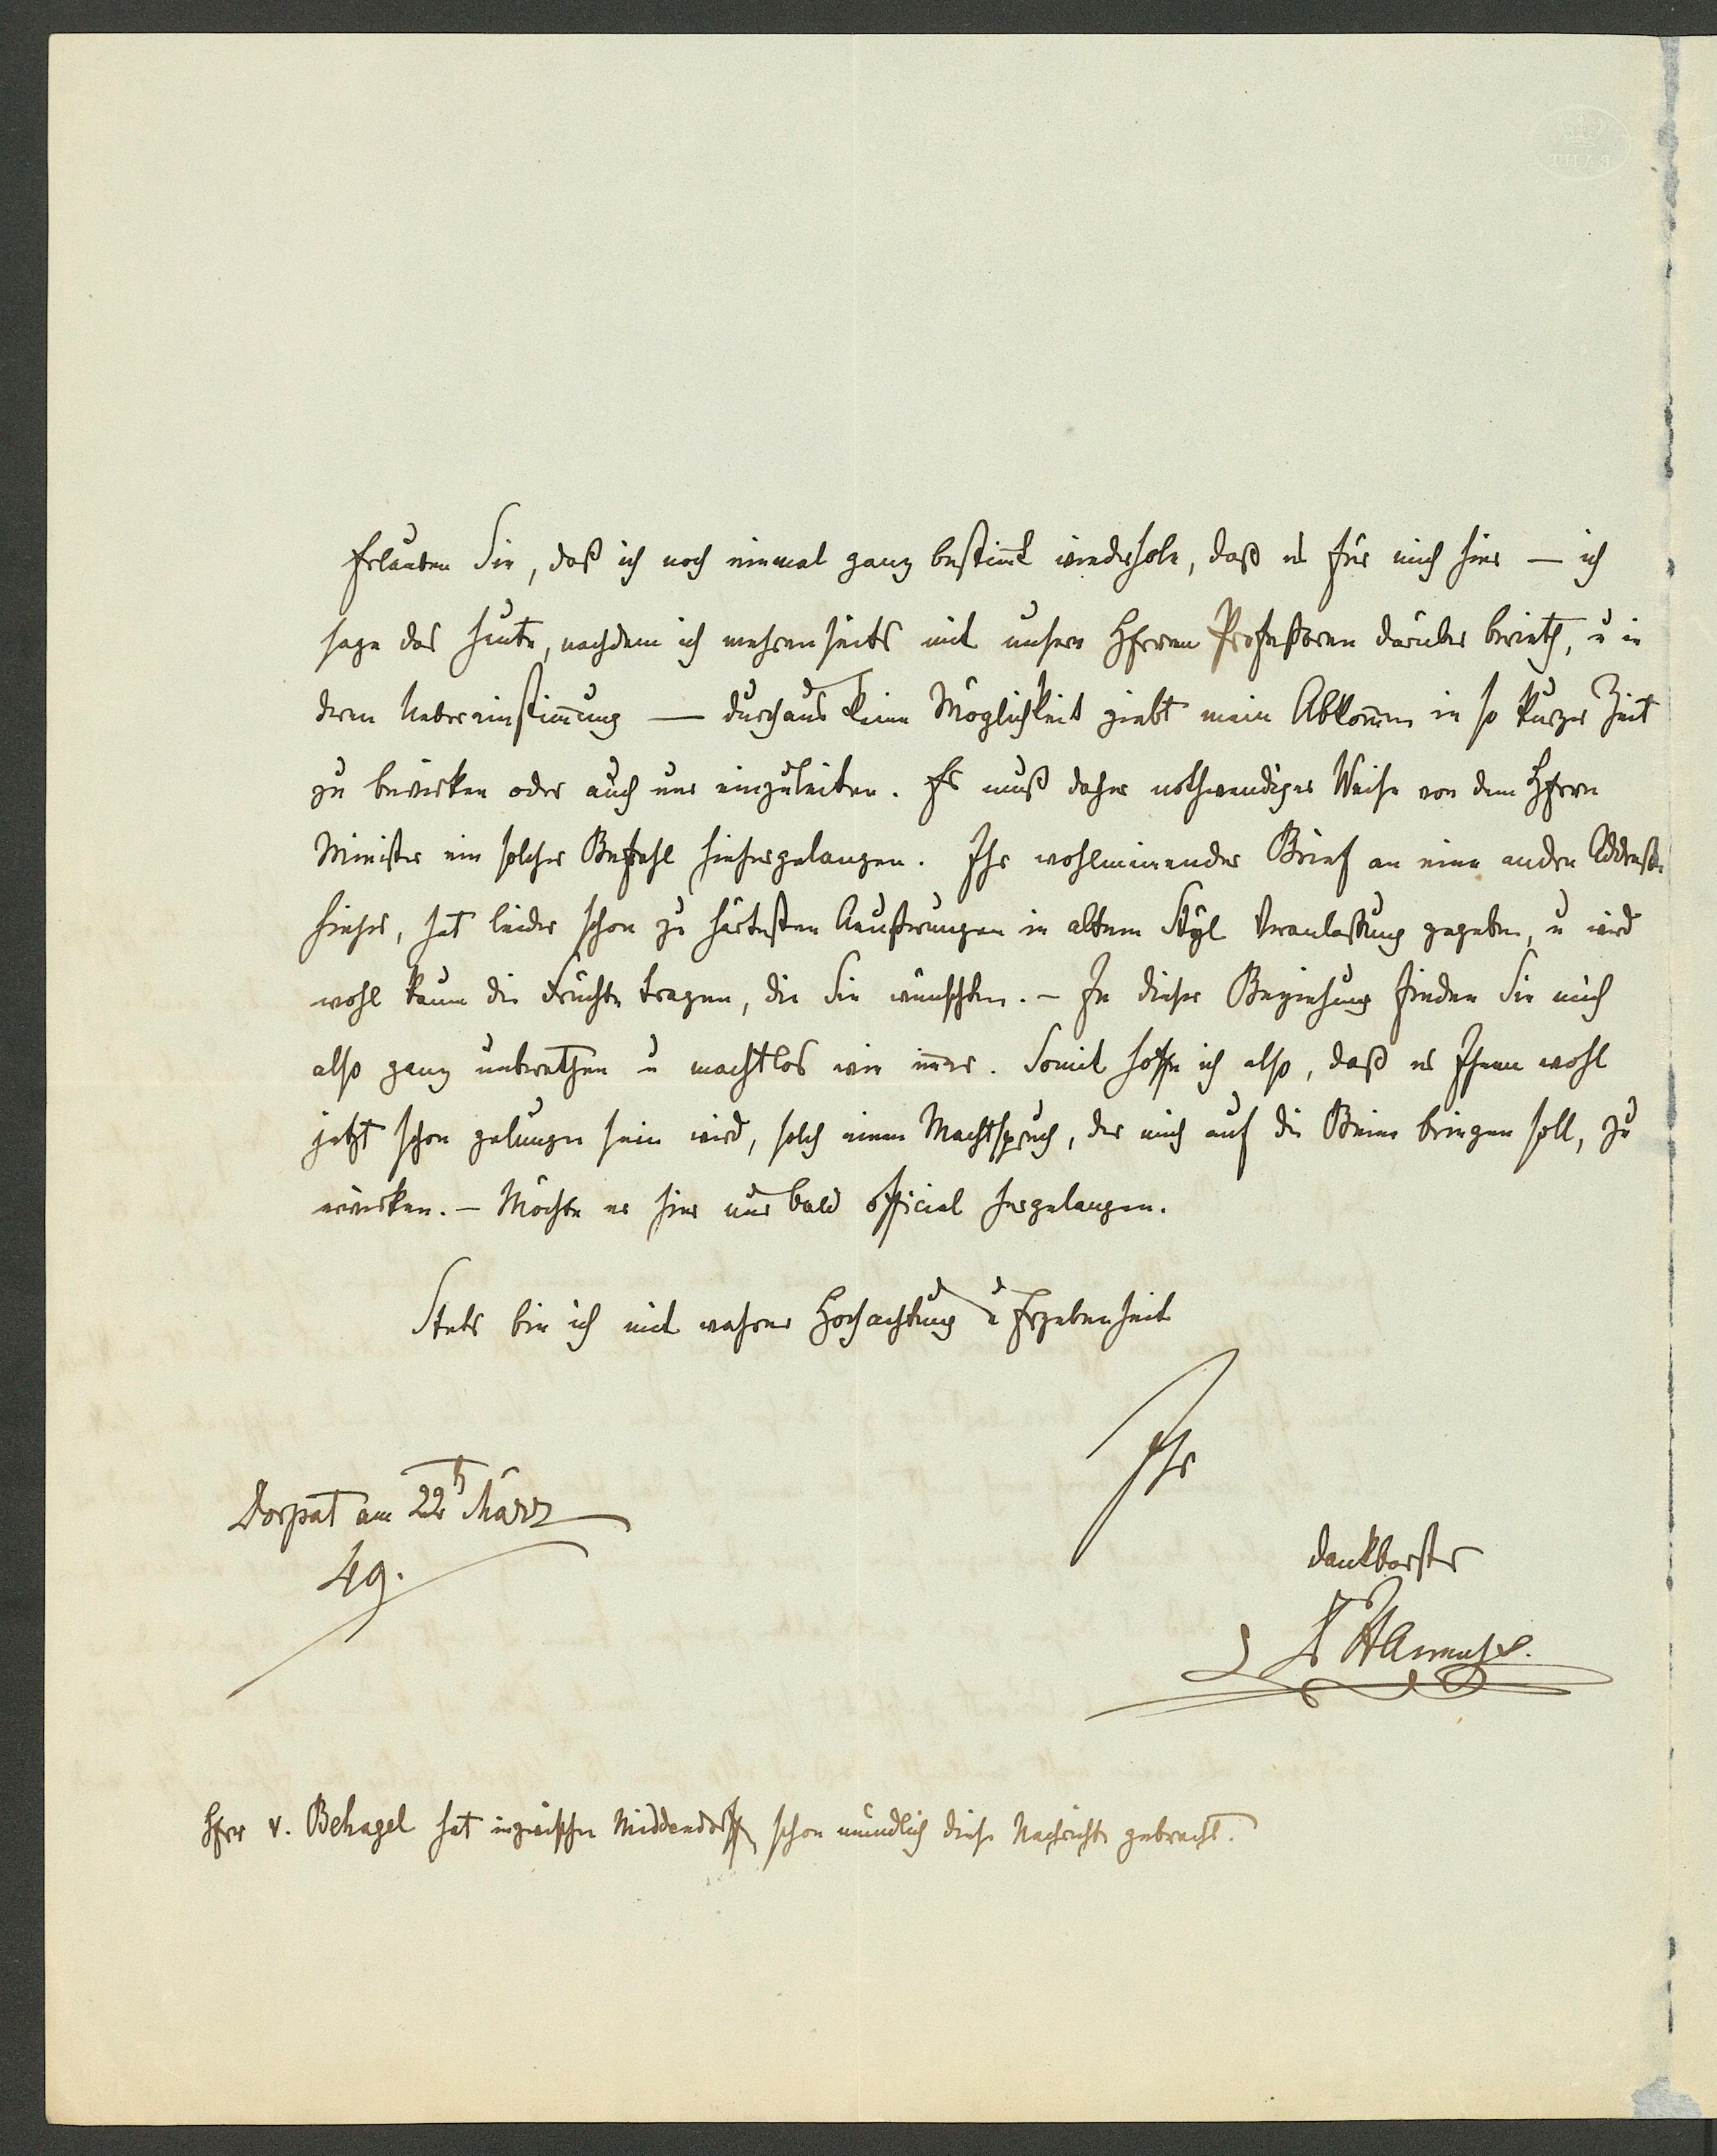 Erlauben Sie, daß ich noch einmal ganz bestimt wiederhole, daß es für mich hier — ich
sage das heute, nachdem ich mehrenseits mit unsern HErren Profeßoren darüber berieth, u in
deren Uebereinstimung — durchaus keine Möglichkeit giebt mein Abkomen in so kurzer Zeit
zu bewirken oder auch nur einzuleiten. Es muß daher nothwendiger Weise von dem HErrn
Minister ein solcher Befehl hiehergelangen. Ihr wohlmeinender Brief an eine andre Addreße
hieher, hat leider schon zu härtesten Aeußerungen in altem Styl Veranlaßung gegeben, u wird
wohl kaum die Früchte tragen, die Sie wünschten. – In dieser Beziehung finden Sie mich
also ganz unberathen u machtlos wie imer. Somit hoffe ich also, daß es Ihnen wohl
jetzt schon gelungen sein wird, solch einen Machtspruch, der mich auf die Beine bringen soll, zu
erwirken. – Möchte er hier nur bald official hergelangen.
Stets bin ich mit wahrer Hochachtung u Ergebenheit
Ihr
Dorpat am 22 März
49.
dankbarster
HErr v. Behagel hat inzwischen Middendorff schon mündlich diese Nachricht gebracht.